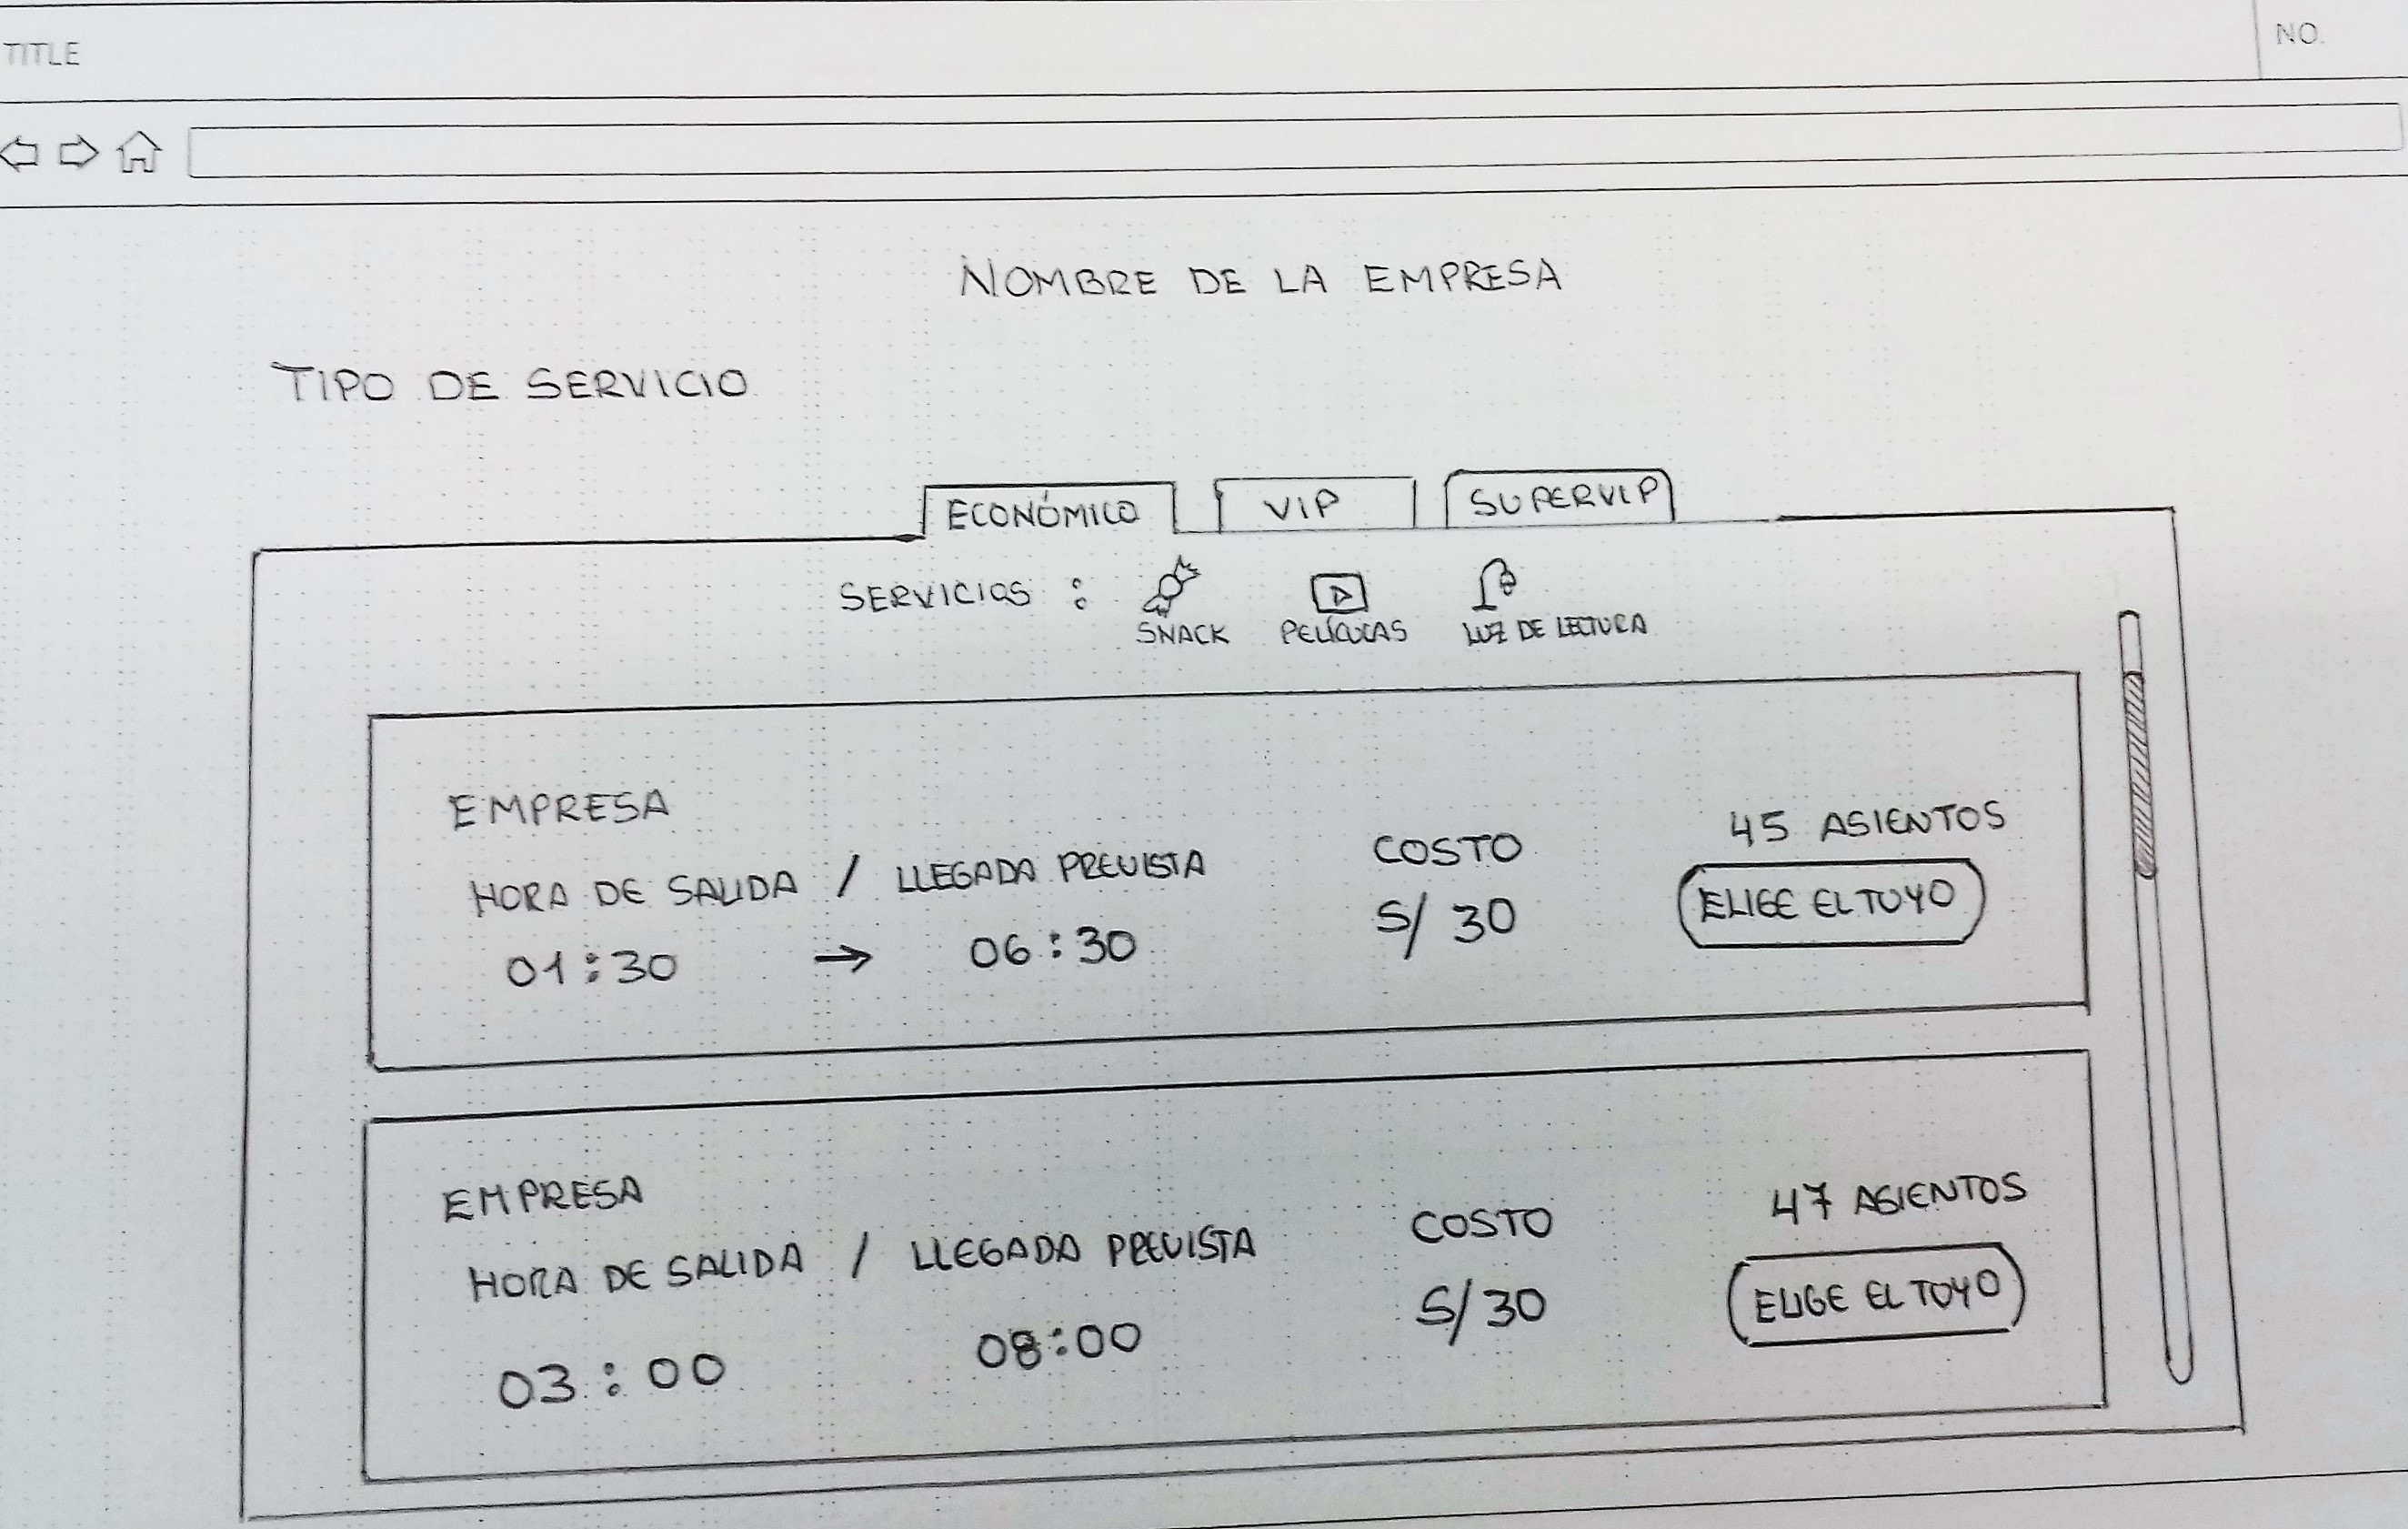 TITLE
NO.
NOMBRE DE LA EMPRESA
TIPO DE SERVICIO
ECONÓMICO VIP SUPERVIP
SERVICIOS :
SNACK PELÍCULAS LUZ DE LECTURA
EMPRESA
HORA DE SALIDA / LLEGADA PREVISTA
01:30 → 06:30
COSTO
S/ 30
45 ASIENTOS
ELIGE EL TUYO
EMPRESA
HORA DE SALIDA / LLEGADA PREVISTA
03:00 08:00
COSTO
S/ 30
47 ASIENTOS
ELIGE EL TUYO